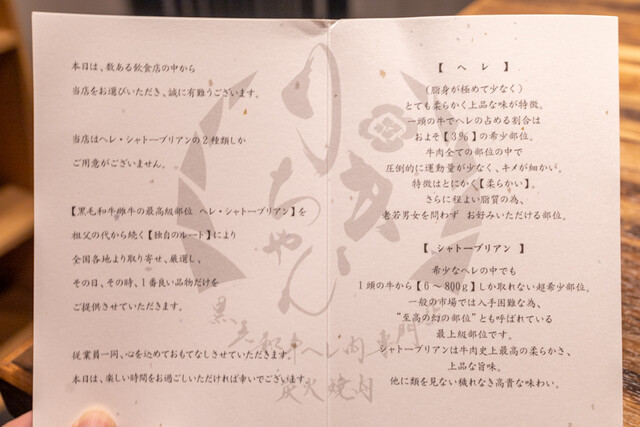 本日は、数ある飲食店の中から
当店をお選びいただき、誠に有難うございます。
当店はヘレ・シャトーブリアンの2種類しか
ご用意がございません。
【黒毛和牛雌牛の最高級部位 ヘレ・シャトーブリアン】を
祖父の代から続く【独自のルート】により
全国各地より取り寄せ、厳選し、
その日、その時、1番良い品物だけを
ご提供させていただきます。
従業員一同、心を込めておもてなしさせていただきます。
本日は、楽しい時間をお過ごしいただければ幸いでございます。
【 ヘ レ 】
（脂身が極めて少なく）
とても柔らかく上品な味が特徴。
一頭の牛でヘレの占める割合は
およそ【3%】の希少部位。
牛肉全ての部位の中で
圧倒的に運動量が少なく、キメが細かい。
特徴はとにかく【柔らかい】。
さらに程よい脂質の為、
老若男女を問わず お好みいただける部位。
【 シャトーブリアン 】
希少なヘレの中でも
1頭の牛から【6～800g】しか取れない超希少部位。
一般の市場では入手困難な為、
“至高の幻の部位”とも呼ばれている
最上級部位です。
シャトーブリアンは牛肉史上最高の柔らかさ、
上品な旨味。
他に類を見ない穢れなき高貴な味わい。
りきちゃん
黒毛和牛ヘレ肉専門店
炭火焼肉